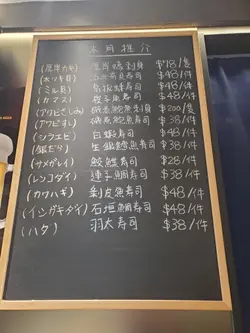 本月推介
(厚岸カキ) 厚岸蠔刺身 $78/隻
(ホッキ貝) 北寄貝寿司 $48/件
(ミル貝) 象拔蚌寿司 $48/件
(カマス) 梭子魚寿司 $48/件
(アワビさしみ) 鮑魚刺身 $200/
(アワビすし) 鮑魚寿司 $38/件
(シラエビ) 白蝦寿司 $48/件
(銀だら) 生銀鱈魚寿司 $38/件
(サメガレイ) 鮫鰈寿司 $28/件
(レンコダイ) 連子鯛寿司 $38/件
(カワハギ) 剥皮魚寿司 $48/件
(イシガキダイ) 石垣鯛寿司 $48/件
(ハタ) 羽太寿司 $38/件